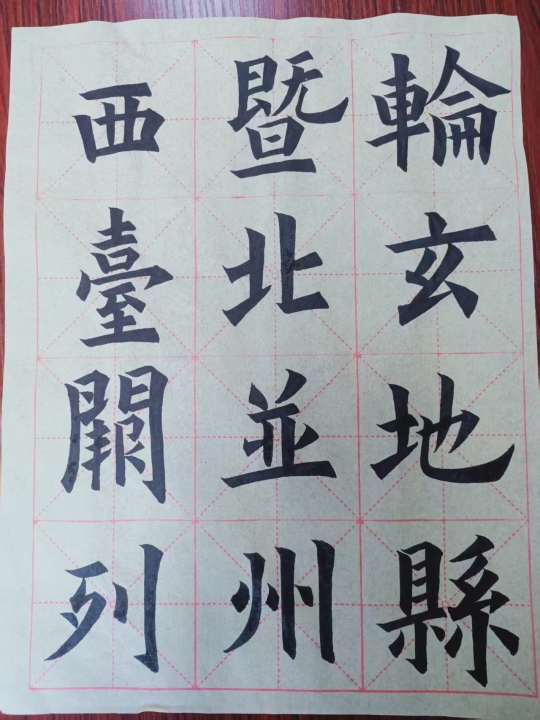 輪玄地縣
暨北並州
西臺闕列